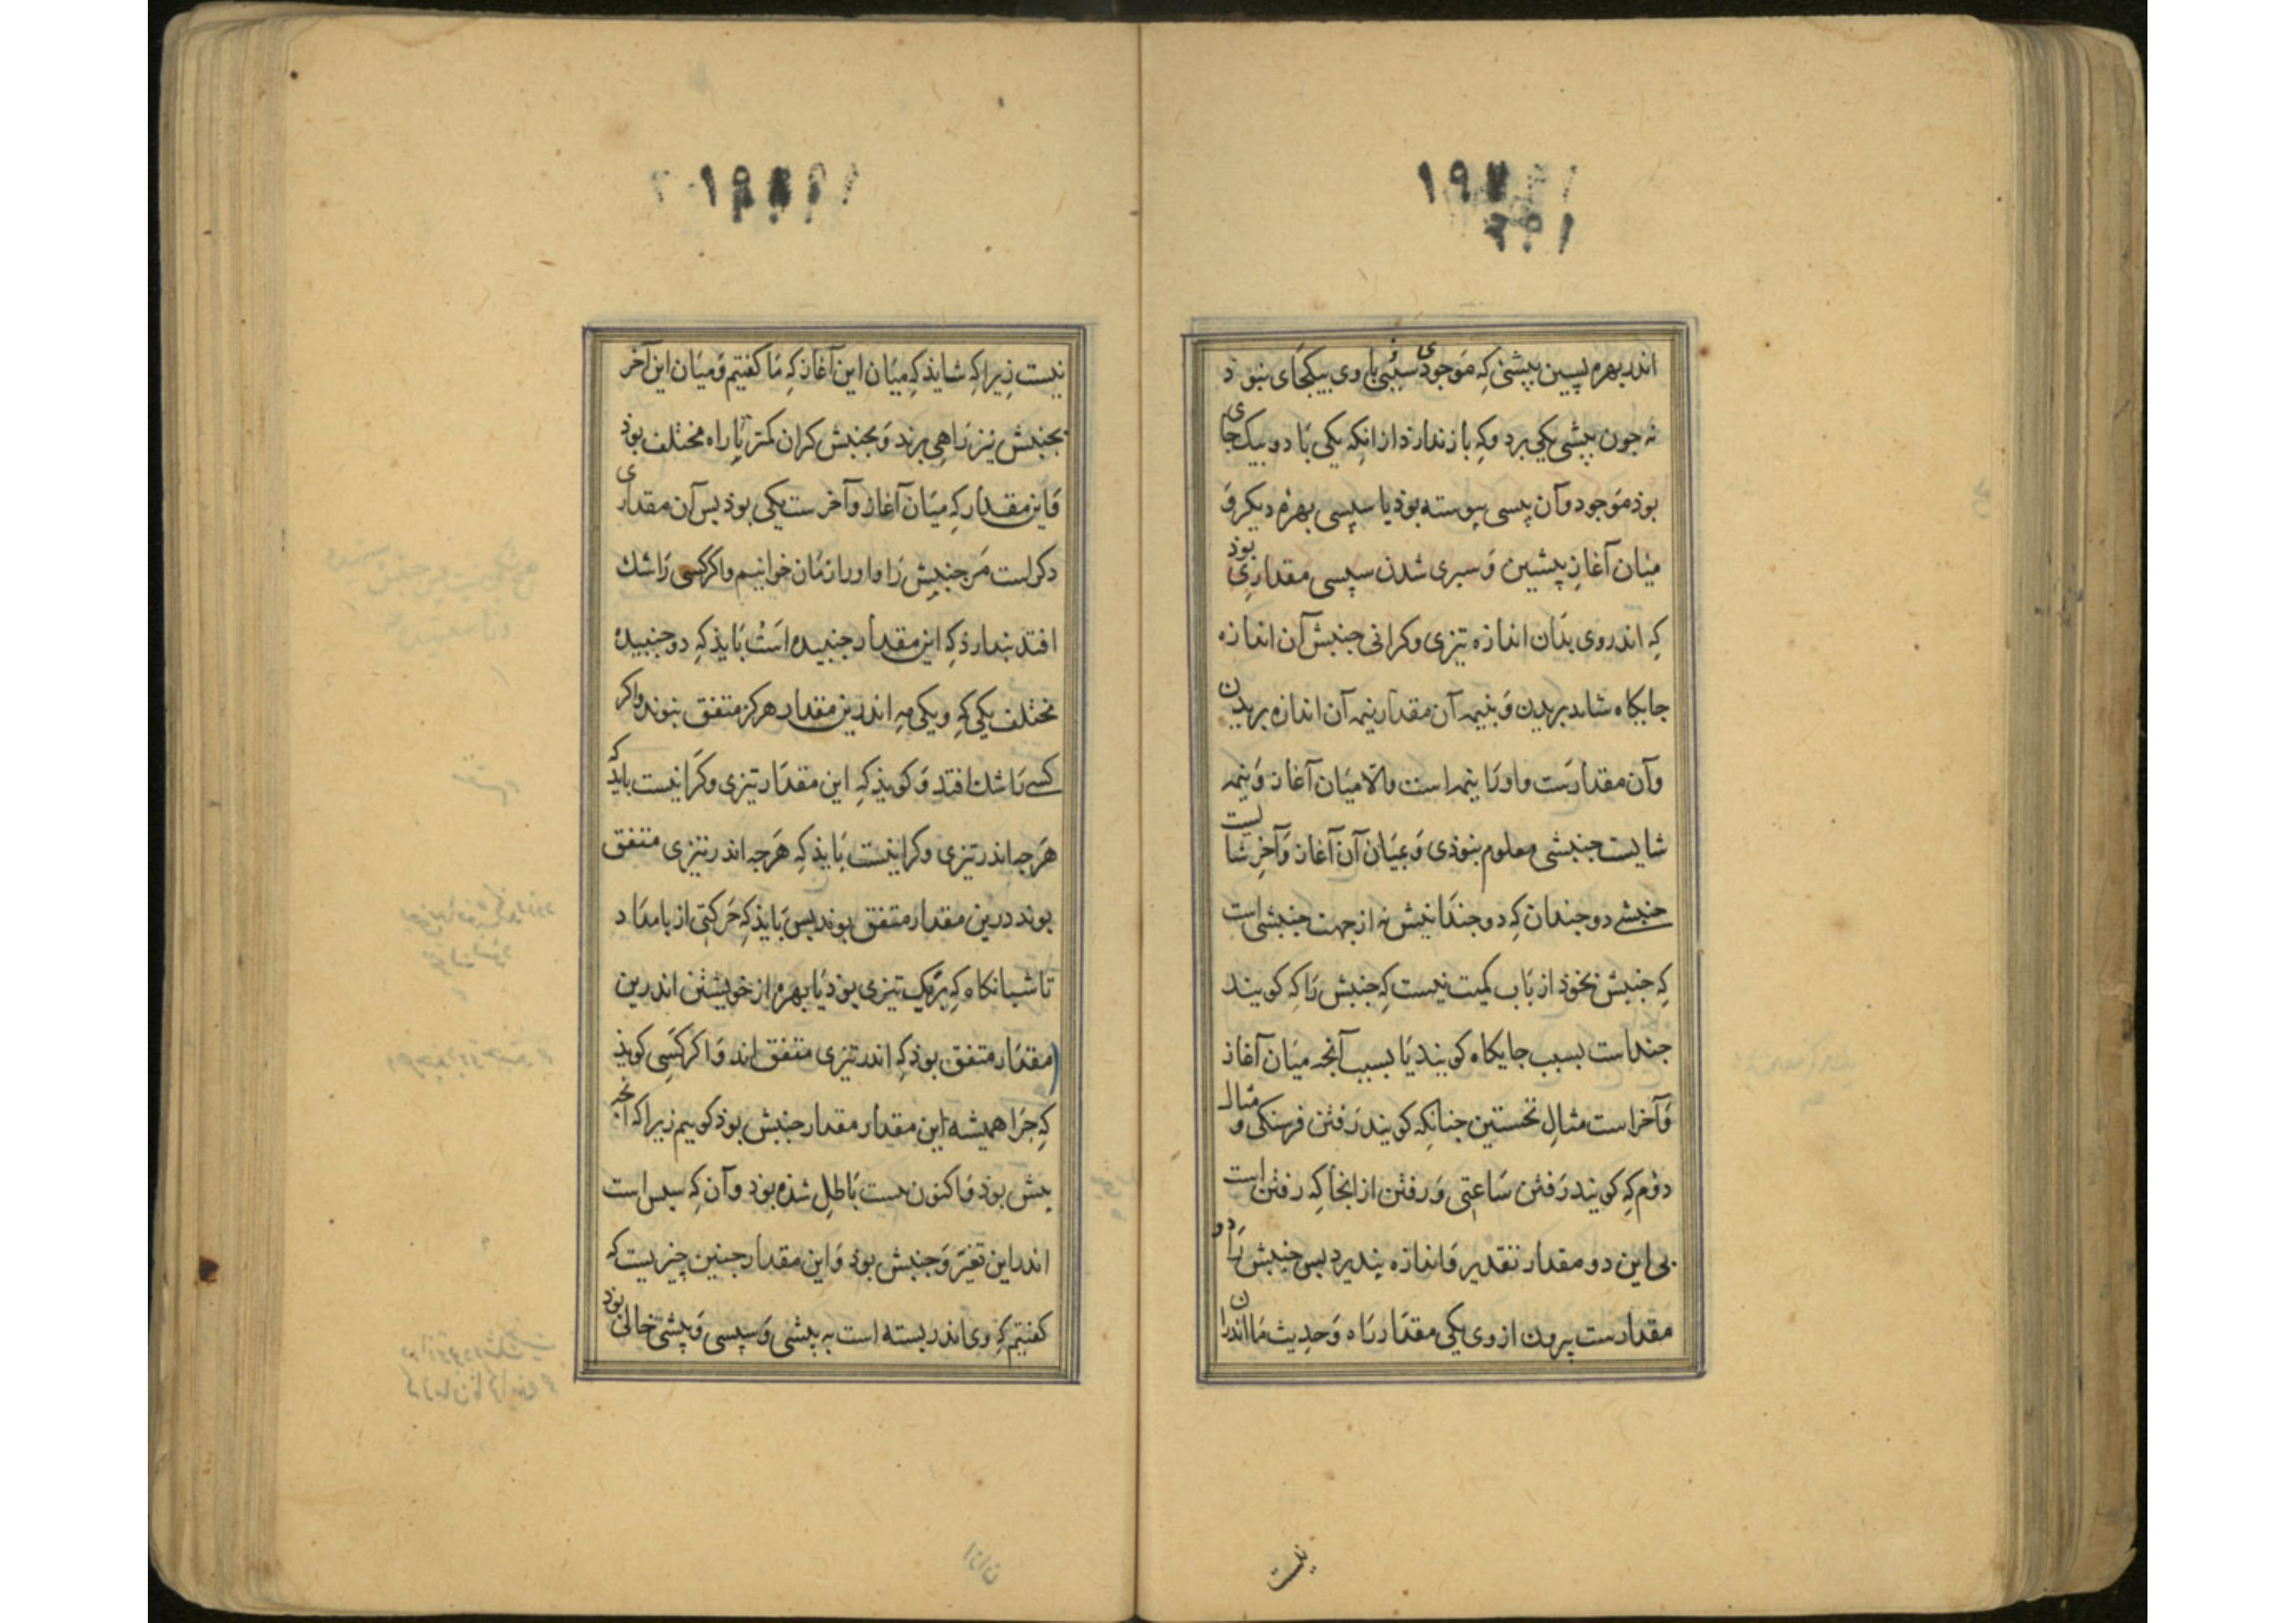 ۱۹۷
۲۰۱
اندر بهرهٔ پسین پیشئ که موجودی سپئی با وی بیکجای نبود
نه جون پیشی یکی برد وکه بازندارذ از انکه یکی با دو بیک جای
بوذ موجود وآن پسی پیوسته بوذ یا سپسی بهرهٔ دیکر و
میان آغازِ پیشین وَ سبری شدن سپسی مقداری بوذ
که اندر وی بدان اندازه تیزی وکرانی جنبش آن اندازه
جایکاه شاید بریدن وَ بنیمه آن مقدار نیمه آن اندازه بریدن
وآن مقدارست واورا نیمه است والا میان آغاز وَ نیمه
شایست جنبشی معلوم بنوذی وَ میان آن آغاز وَ آخِر شایست
جنبشے دو جندان که دو جندانیش نه از جهت جنبشی است
که جنبش بخوذ از باب کمیت نیست که جنبش را که کویند
جنداست بسبب جایکاه کویند یا بسبب آنجه میان آغاز
وَ آخر است مثالِ نخستین جنانکه کویند رفتن فرسنکی و مثال
دوُم که کویند رَفتن ساعتی وَ رفتن از انجا که رفتن است
بی این دو مقدار تقدیر وَ اندازه پذیرد بس جنبش را دو
مقدارست بیرون از وی یکی مقدار راه وَ حدیث ما اندران
نیست
نیست زیرا که شایذ که میان این آغاز که ما کفتیم وَ میان این آخر
بجنبش نیز راهی برند وَ بجنبش کران کمتر تا راه مختلف بوذ
وَ این مقدار که میان آغاز وآخر ست یکی بوذ بس آن مقداری
دکر است مَر جنبش را واو را زمان خوانیم واکر کسی را شك
افتد بندارذ که این مقدار جنبیده است باید که دو جنبیده
مختلف یکی کِه و یکی مِه اندرین مقدار هرکز متفق بنوند واکر
کسے را شك افتد وَ کویذ که این مقدار تیزی وکرانیست بایذ که
هَرجه اندر تیزی وکرانیست بایذ که هَرجه اندر تیزی متفق
بوند درین مقدار متفق بوند بس بایذ که حَرکتی از بامداد
تا شبانکاه که بَریک تیزی بوذ با بهرهٔ از خویشتن اندرین
مقدار متفق بوذ که اندر تیزی متفق اند وَ اکر کسی کویذ
که جرا همیشه این مقدار مقدار جنبش بوذ کوییم زیرا که انجه
بیش بوذ وَ اکنون نیست باطل شذه بوذ وآن که سبس است
اندر این تغیّر وَ جنبش بوذ وَ این مقدار جنین چیزیست که
کفتیم که وی اندر بسته است به پیشی وَ سپسی وَ پیشی خالی بوذ